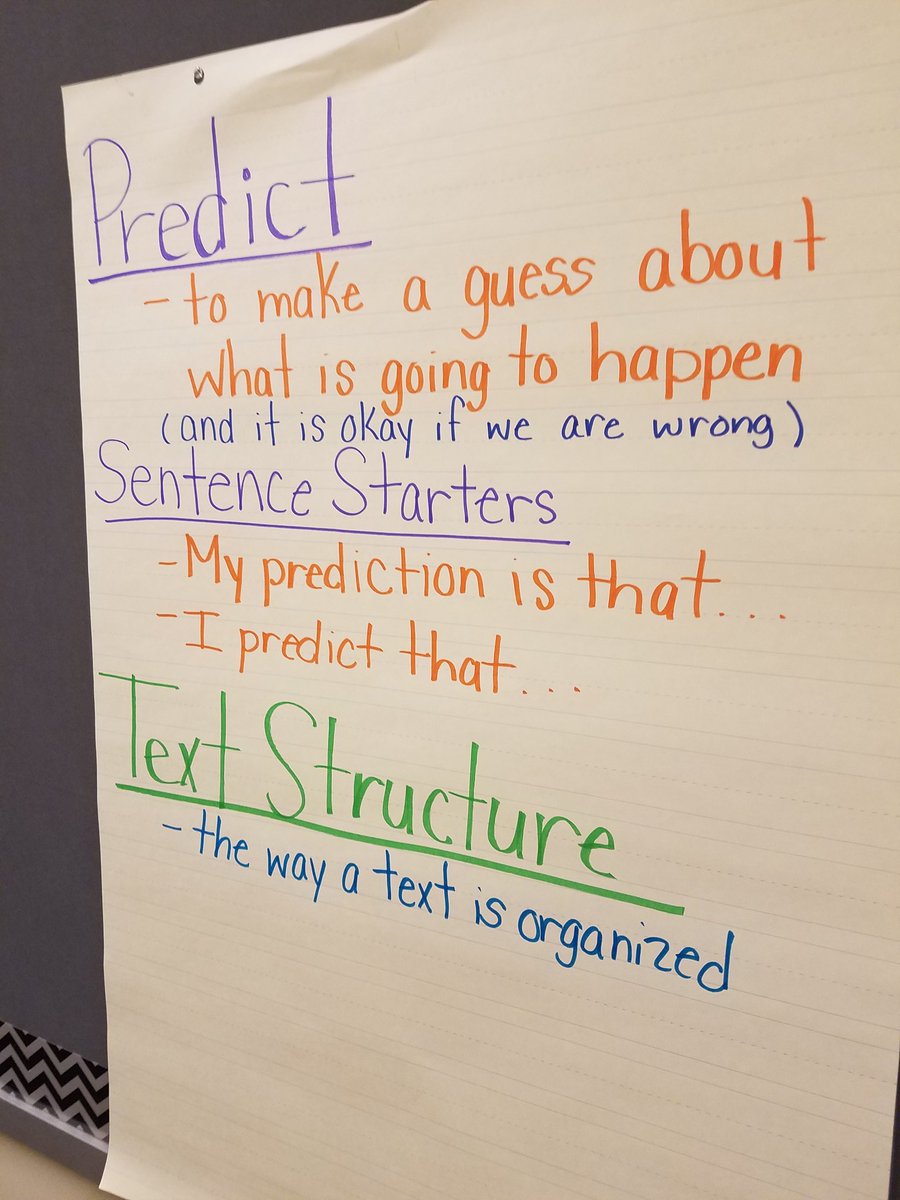 Predict
- to make a guess about
what is going to happen
(and it is okay if we are wrong)
Sentence Starters
- My prediction is that...
- I predict that...
Text Structure
- the way a text is organized